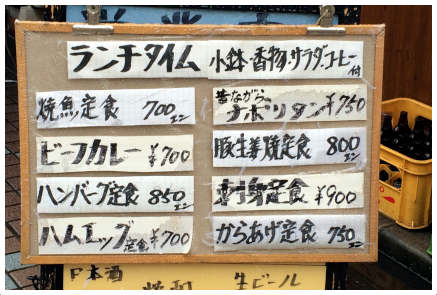 ランチタイム 小鉢・香物・サラダ・コーヒー付
焼魚定食 700エン
ビーフカレー ¥700
ハンバーグ定食 850エン
ハムエッグ定食 ¥700
昔ながらナポリタン ¥750
豚生姜焼定食 800エン
刺身定食 ¥900
からあげ定食 750エン
日本酒
生ビール